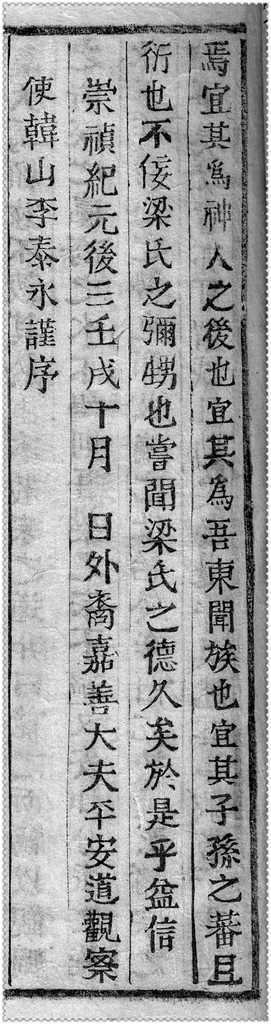 焉宜其爲神人之後也宜其爲吾東聞族也宜其子孫之蕃且
衍也不佞梁氏之彌甥也嘗聞梁氏之德久矣於是乎益信
崇禎紀元後三壬戌十月　日外裔嘉善大夫平安道觀察
使韓山李泰永謹序